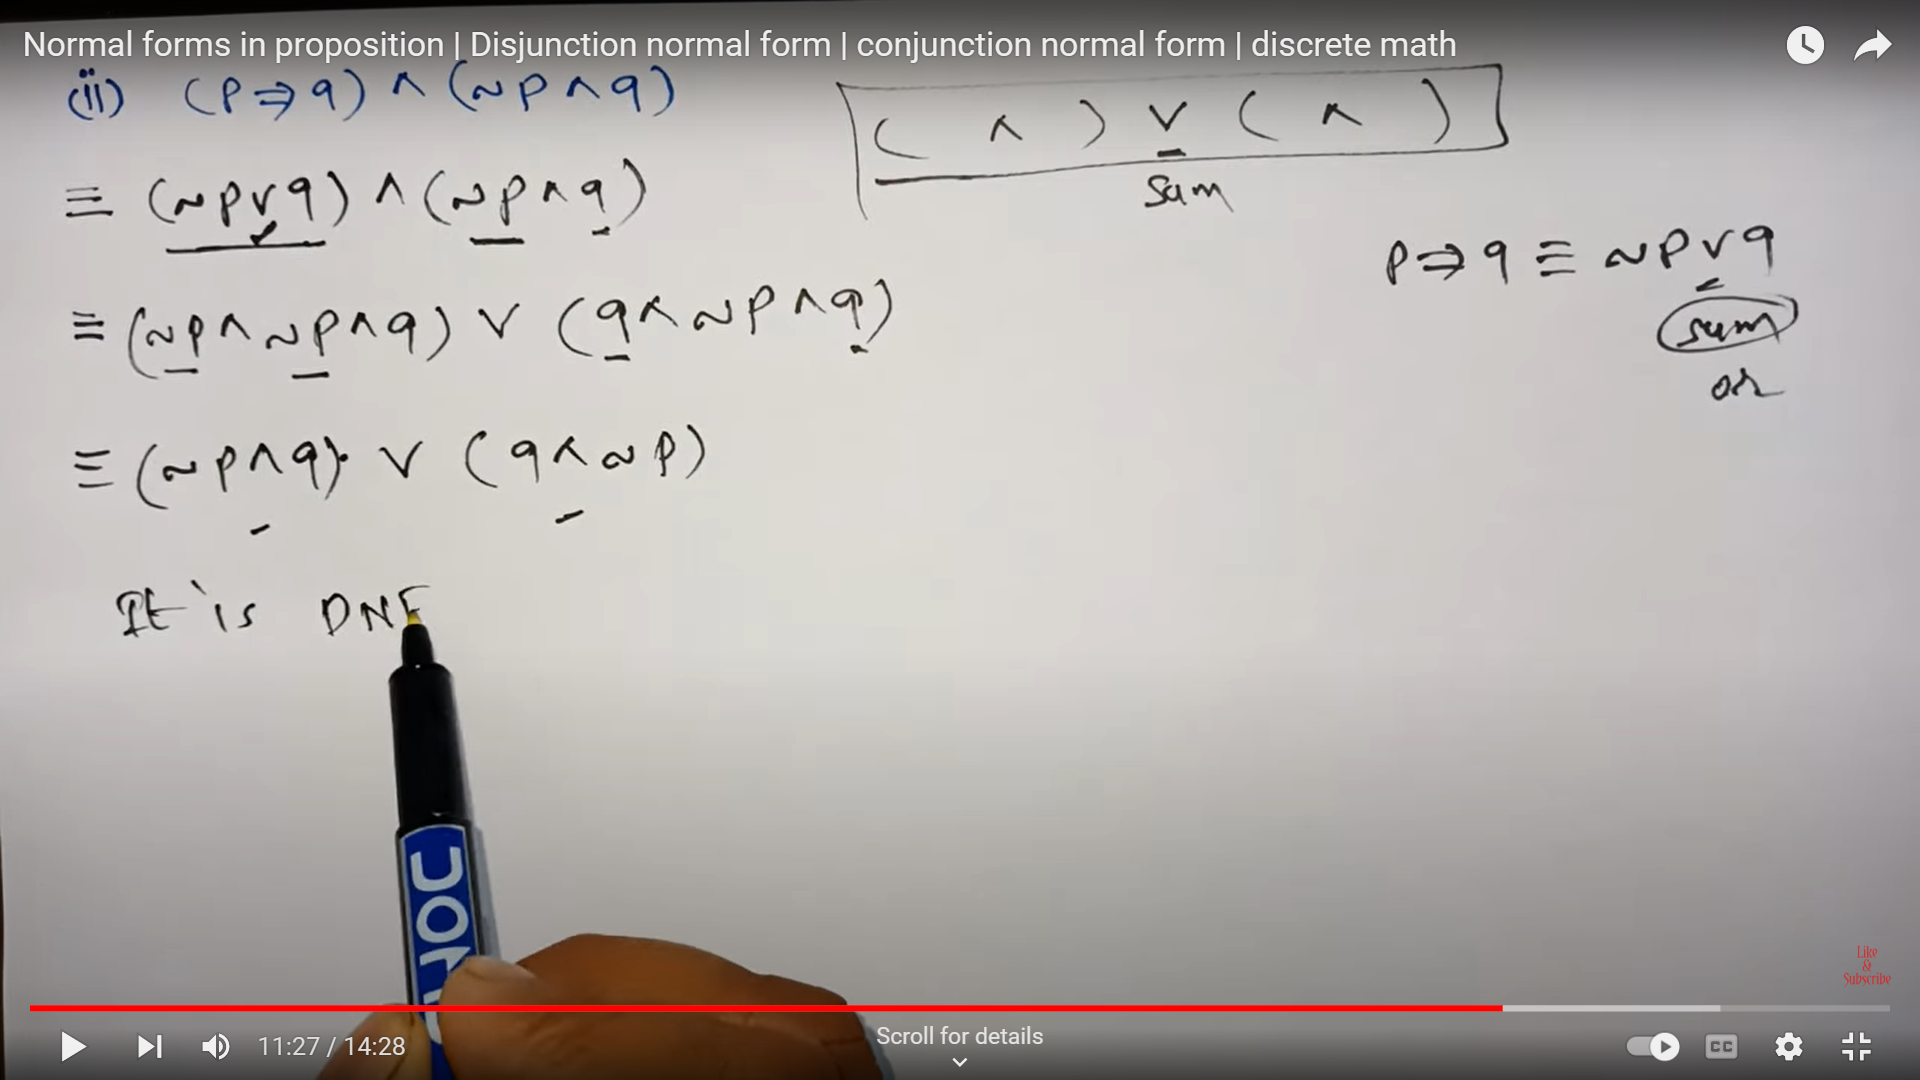 Normal forms in proposition | Disjunction normal form | conjunction normal form | discrete math
(ii) (P ⇒ q) ∧ (~P ∧ q)
( ∧ ) ∨ ( ∧ )
sum
≡ (~P ∨ q) ∧ (~P ∧ q)
P ⇒ q ≡ ~P ∨ q
sum
or
≡ (~P ∧ ~P ∧ q) ∨ (q ∧ ~P ∧ q)
≡ (~P ∧ q) ∨ (q ∧ ~P)
It is DNF
Like
&
Subscribe
11:27 / 14:28
Scroll for details
CC